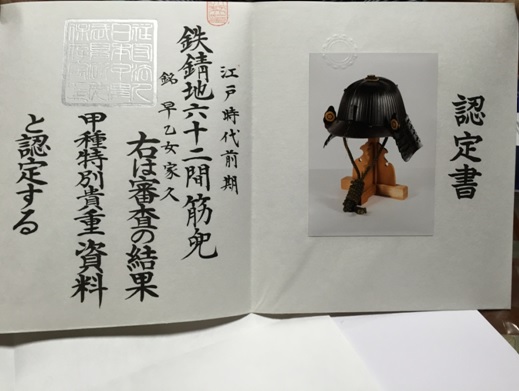 認定書
江戸時代前期
鉄錆地六十二間筋兜
銘 早乙女家久
右は審査の結果
甲種特別貴重資料
と認定する